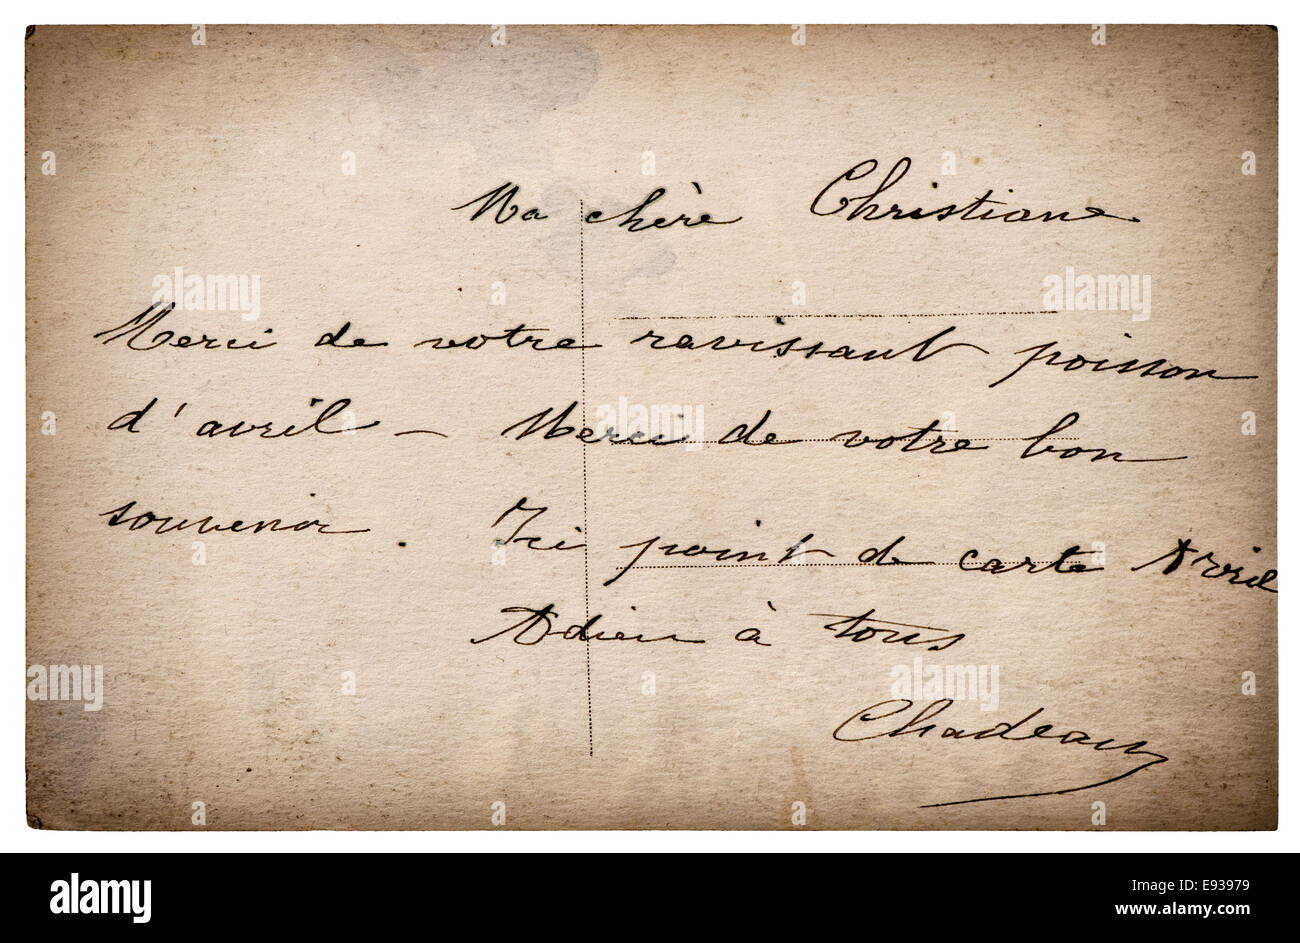 Ma chère Christiane
Merci de votre ravissant poisson
d'avril – Merci de votre bon
souvenir. Ici point de carte Avril
Adieu à tous
Chadeaux
alamy
Image ID: E93979
www.alamy.com